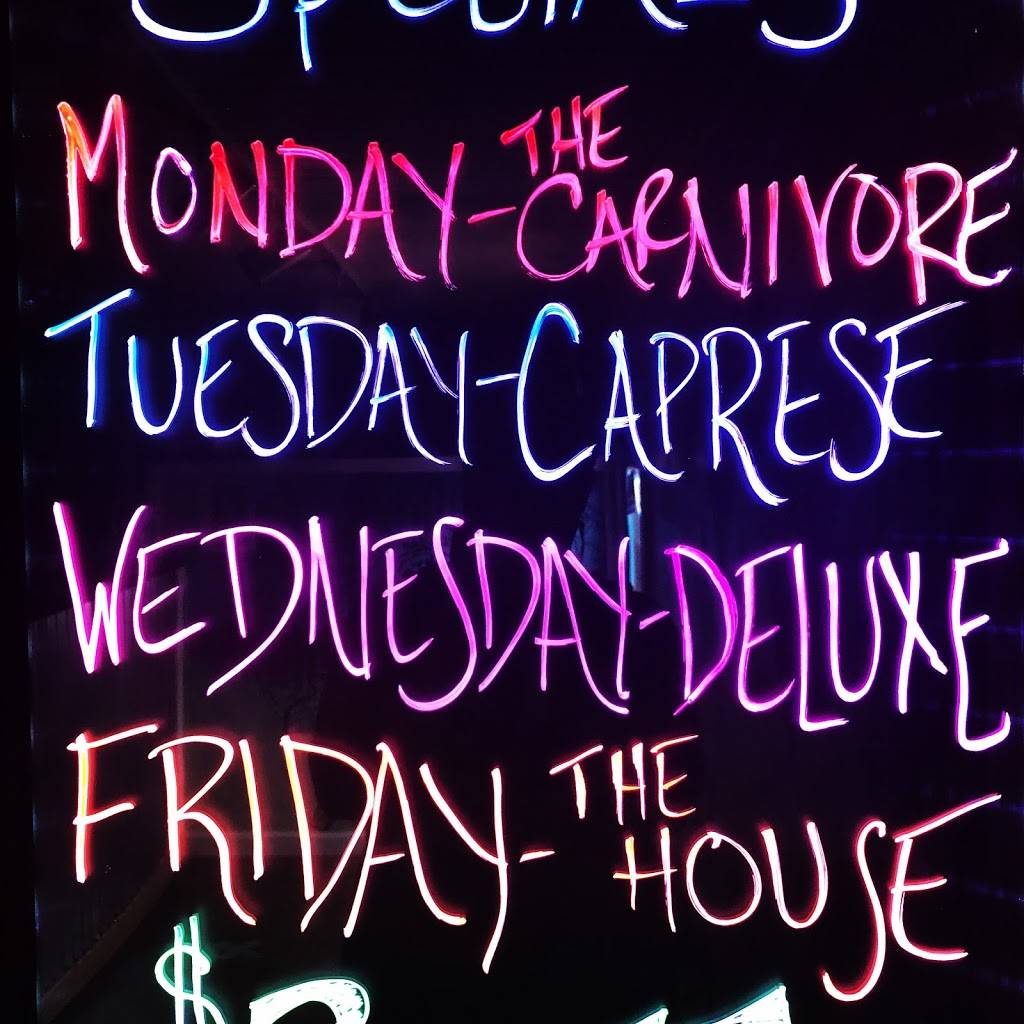 SPECIALS
MONDAY-THE CARNIVORE
TUESDAY-CAPRESE
WEDNESDAY-DELUXE
FRIDAY-THE HOUSE
$